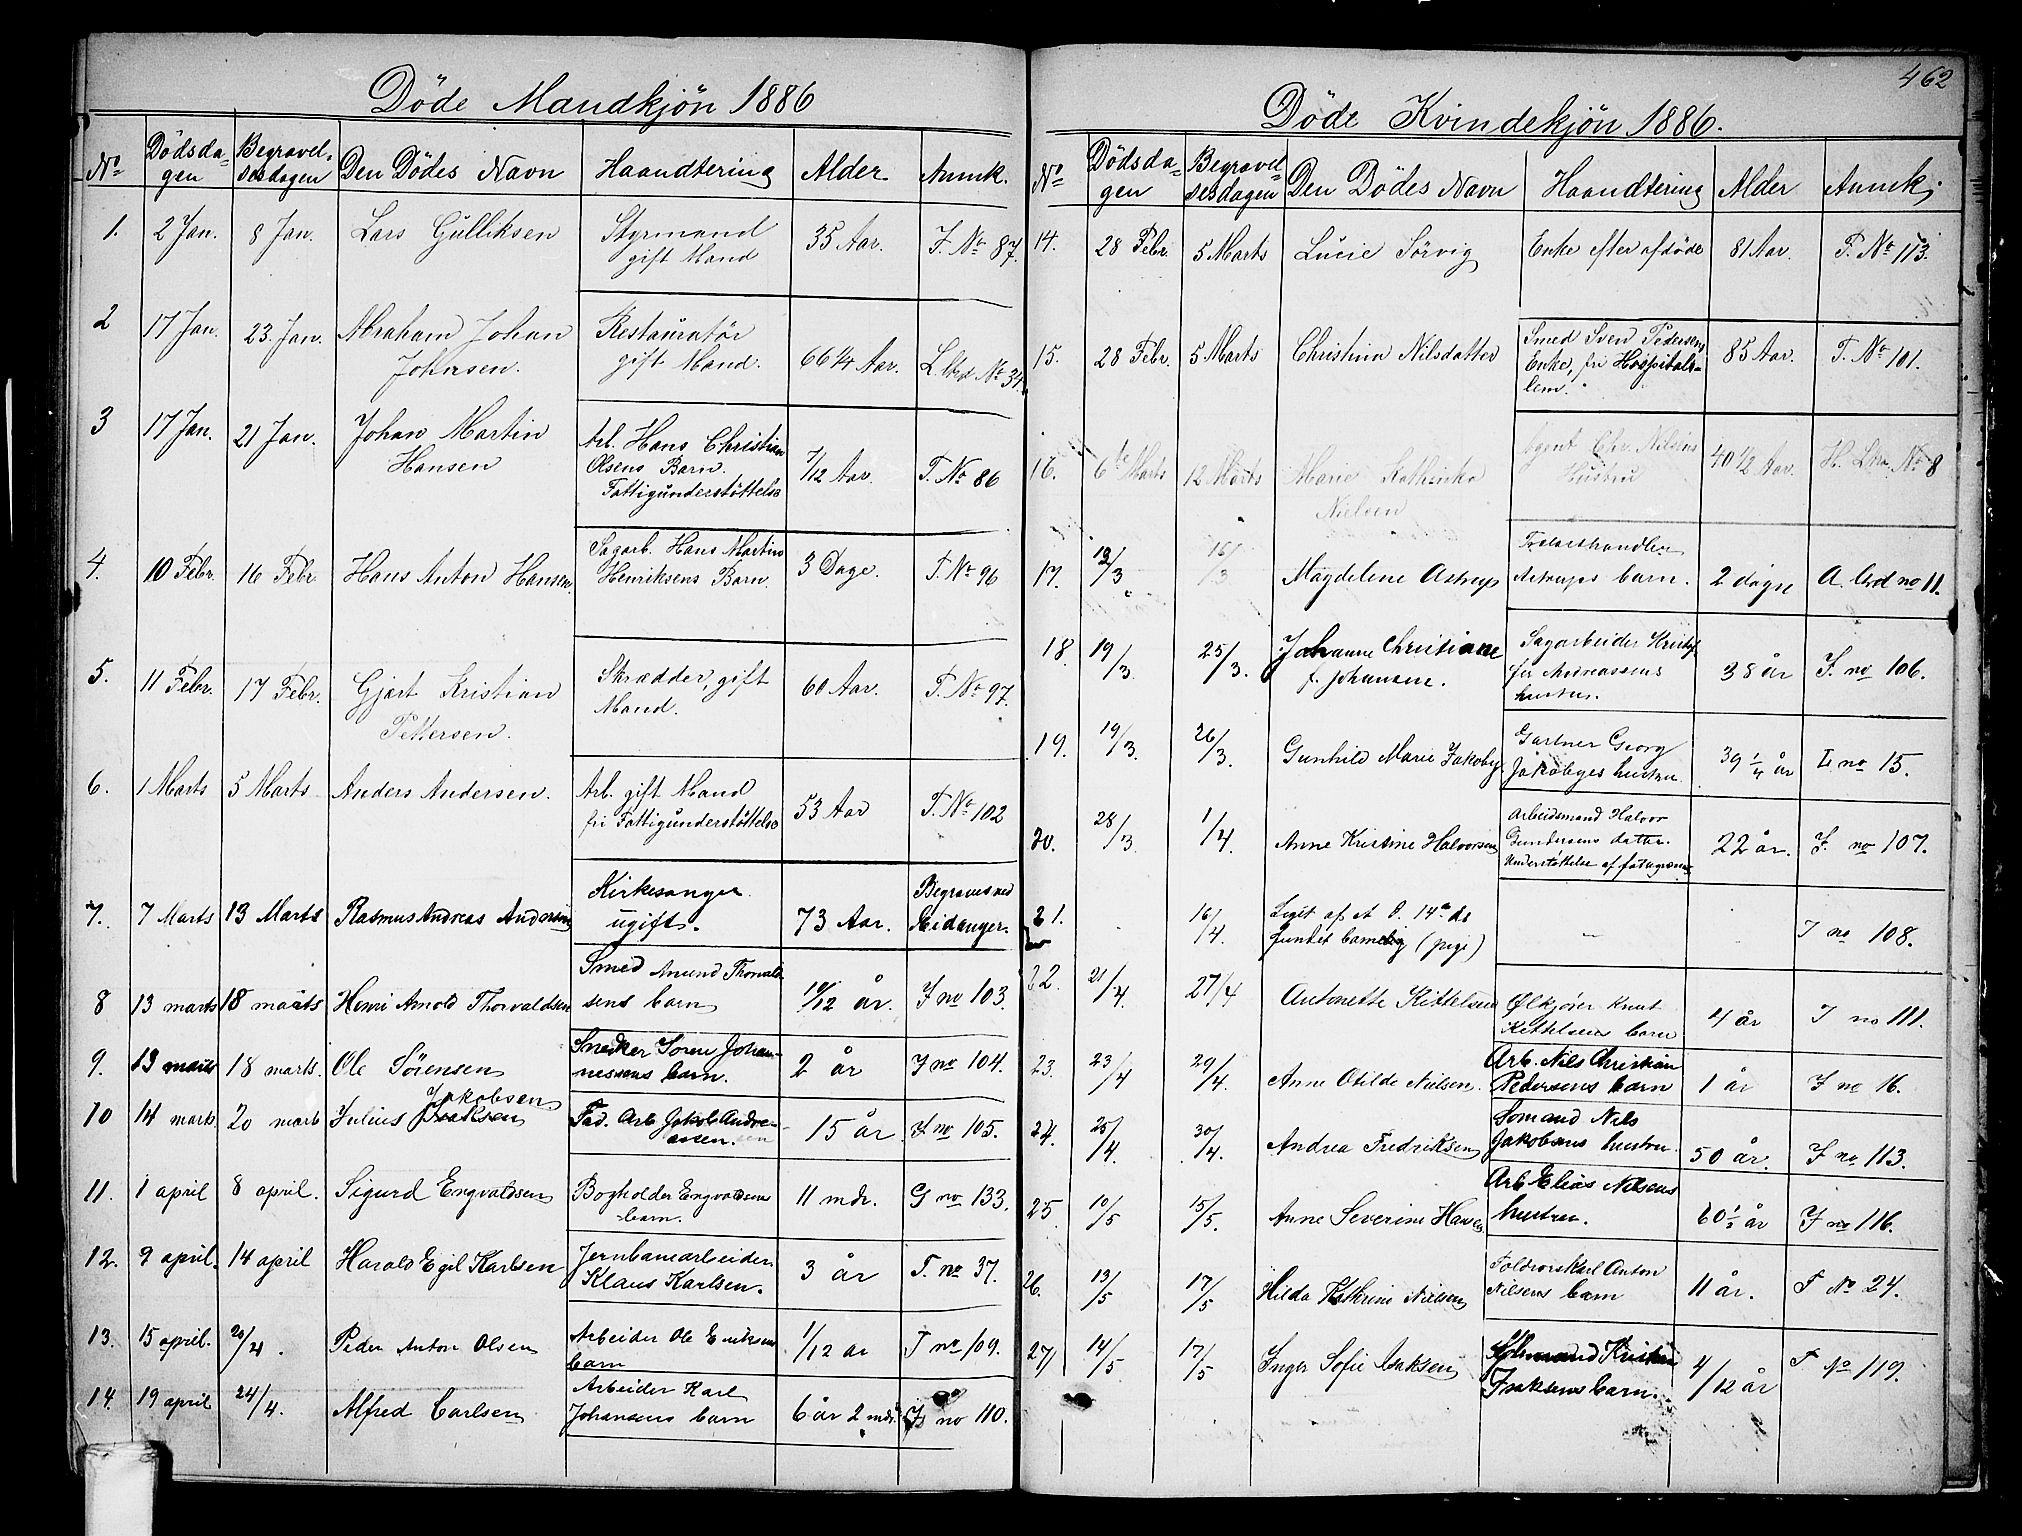 462
Döde Mandkjön 1886
No Dödsdagen Begravelsesdagen Den Dödes Navn Haandtering Alder Anmk.
1. 2 Jan. 8 Jan. Lars Gulliksen Styrmand gift Mand 35 Aar. F. No 87.
2 17 Jan. 23. Jan. Abraham Johan Johnsen. Restauratör gift Mand. 66 1/4 Aar. No 34.
3 17 Jan. 21 Jan. Johan Martin Hansen Arb. Hans Christian Olsens Barn. Fattigunderstöttelse 7/12 Aar. F. No 86
4. 10 Febr. 16 Febr. Hans Anton Hansen. Sagarb. Hans Martin Henriksens Barn. 3 Dage. F. No 96
5. 11 Febr. 17 Febr. Gjert Kristian Pettersen. Skrædder, gift Mand. 60 Aar. F. No 97.
6. 1 Marts 5 Marts Anders Andersen. Arb. gift Mand fri Fattigunderstöttelse 53 Aar F. No 102
7. 7 Marts 13 Marts Rasmus Andreas Andersen Kirkesanger ugift. 73 Aar. Begraves ved Eidanger.
8 13 marts 18 marts Henri Arnold Thorvaldsen Smed Anund Thorvaldsens barn 10/12 år. F no 103.
9. 13 marts 18 marts. Ole Sörensen Snedker Sören Johannessens barn. 2 år F no 104.
10 14 marts 20 marts Julius Jakobsen Fad. Arb Jakob Andreassen. 15 år F no 105.
11. 1 april 8 april. Sigurd Engvaldsen Bogholder Engvaldsens barn. 11 mdr. G no 133.
12. 9 april. 14 april Harald Egil Karlsen Jernbanearbeider Klaus Karlsen. 3 år F. no 37.
13. 15 april. 20/4. Peder Anton Olsen Arbeider Ole Eriksens barn 1/12 år F no 109.
14. 19 april 24/4. Alfred Carlsen Arbeider Karl Johansens barn 6 år 2 mdr. F no 110.
Döde Kvindekjön 1886.
No Dödsdagen Begravelsesdagen Den Dödes Navn Haandtering Alder Anmk.
14. 28 Febr. 5 Marts Lucie Sörvig Enke efter afdöde 81 Aar. F. No 113.
15. 28 Febr. 5 Marts Christina Nilsdatter Smed Sven Pedersens Enke, fri Hospitalslem. 85 Aar. F. No 101.
16. 6te Marts 12 Marts Marie Kathinka Nielsen Agent Chr. Nilsens Hustru 40 1/2 Aar. No 8
17. 12/3 16/3 Magdelene Astrup Astrups barn. 2 dage A. no 11.
18 19/3 25/3. Johanne Christiane f. Johansen. Sagarbeider Kristoffer Andreassens hustru. 38 år F. no 106.
19. 19/3. 26/3 Gunhild Marie Jakoby Gartner Georg Jakobyes hustru 39 1/4 år no 15.
20. 28/3. 1/4. Anne Kristine Halvorsen Arbeidsmand Halvor Gundersens datter. Understöttelse af 22 år. F. no 107.
21. 16/4. Liget af et d. 14de ds fundet barnelig (pige) F no 108.
22. 21/4 27/4 Antonette Kittelsen Ølkjører Knut Kittelsens barn 4 år F no 111.
23. 23/4 29/4. Anne Otilde Nielsen. Arb. Nils Christian Pedersens barn 1 år F no 16.
24. 25/4 30/4. Andrea Fredriksen Sømand Nils Jakobsens hustru. 50 år. F no 113.
25. 10/5 15/5. Anne Severine Hansen Arb Elias Nilsens hustru. 60 1/2 år F no 116.
26. 13/5 17/5 Hilda Kathrine Nielsen Anton Nilsens barn 11 år. F No 24.
27, 14/5 17/5 Inger Sofie Isaksen Kristian Isaksens barn. 4/12 år F No 119.